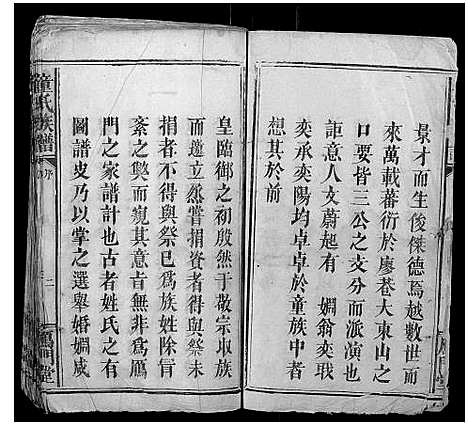 景才而生俊傑德焉越數世而
來萬載蕃衍於廖巷大東山之
口要皆三公之支分而派演也
詎意人文蔚起有 嫺翁奕戢
奕承奕陽均卓卓於童族中者
想其於前
皇臨御之初殷然于敬宗收族
而遵立烝嘗捐資者得與祭未
捐者不得與祭已為族姓除冒
紊之獘而覘其意旨無非為鴈
門之家譜計也古者姓氏之有
圖譜史乃以掌之選舉婚嫺咸
童氏族譜
序
二
鴈門堂